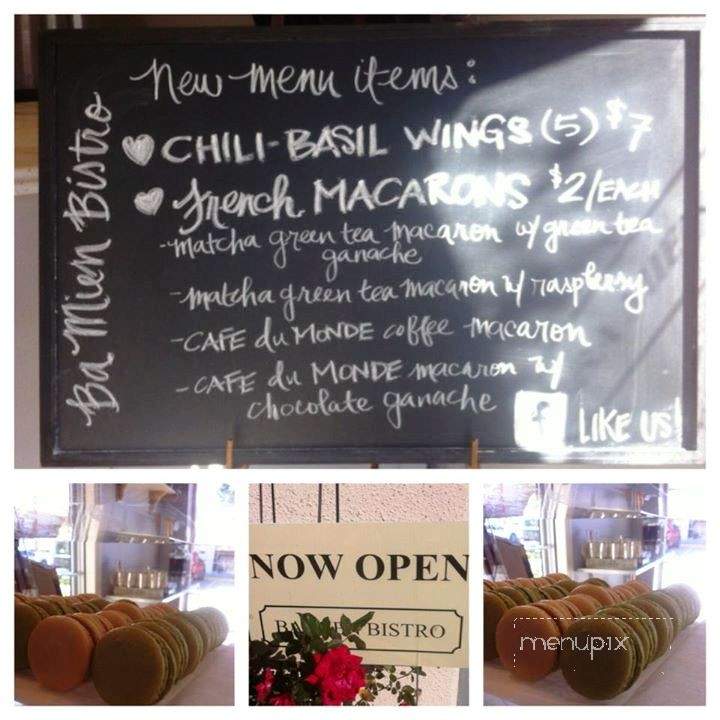 Ba Mien Bistro
New menu items:
CHILI-BASIL WINGS (5) $7
French MACARONS $2/EACH
-matcha green tea macaron w/ green tea
ganache
-matcha green tea macaron w/ raspberry
-CAFE du MONDE coffee macaron
-CAFE du MONDE macaron w/
chocolate ganache
f LIKE US!
NOW OPEN
BISTRO
menupix